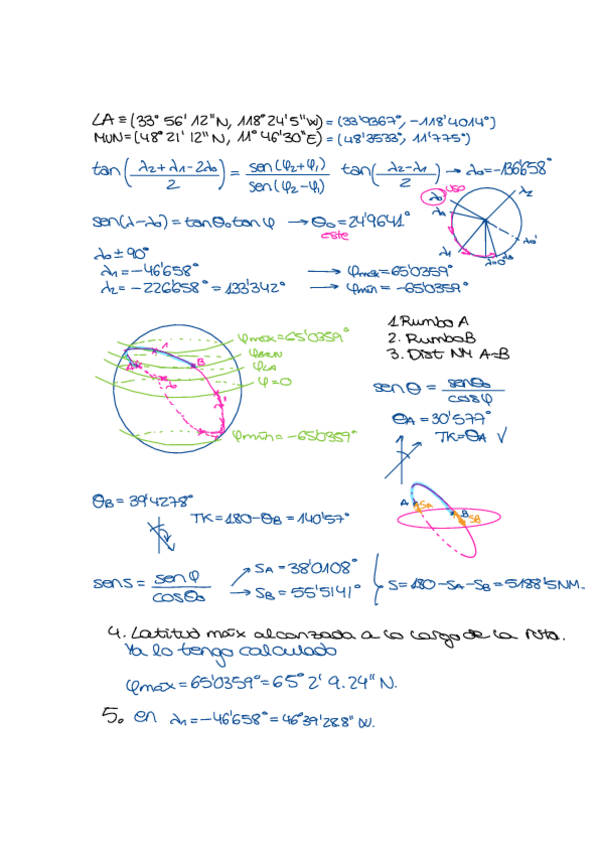 LA ≡ (33° 56' 12"N, 118° 24' 5"W) = (33'9367°, -118'4014°)
MUN = (48° 21' 12"N, 11° 46' 30"E) = (48'3533°, 11'775°)
tan((λ₂+λ₁-2λ₀)/2) = sen(φ₂+φ₁)/sen(φ₂-φ₁) tan((λ₂-λ₁)/2) → λ₀ = -136'658°
sen(λ-λ₀) = tanθ₀ tanφ → θ₀ = 24'9641°
este
λ₀ ± 90°
λ₁ = -46'658° → φmax = 65'0359°
λ₂ = -226'658° = 133'342° → φmín = -65'0359°
uso
λ₀
λ₂
λ₁
λ₀'
λ₁
λ=0°
φmax = 65'0359°
φMUN
φLA
φ=0
φmín = -65'0359°
A
B
λ₀
1. Rumbo A
2. Rumbo B
3. Dist NM A-B
senθ = senθ₀/cosφ
θA = 30'577°
TK = θA ✓
A
SA
B
SB
θB = 39'4278°
TK = 180 - θB = 140'57°
senS = senφ/cosθ₀
SA = 38'0108°
SB = 55'5141°
S = 180 - SA - SB = 5188'5NM.
4. Latitud máx alcanzada a lo largo de la ruta.
Ya lo tengo calculado
φmax = 65'0359° = 65° 2' 9.24" N.
5. en λ₁ = -46'658° = 46° 39' 28.8" W.